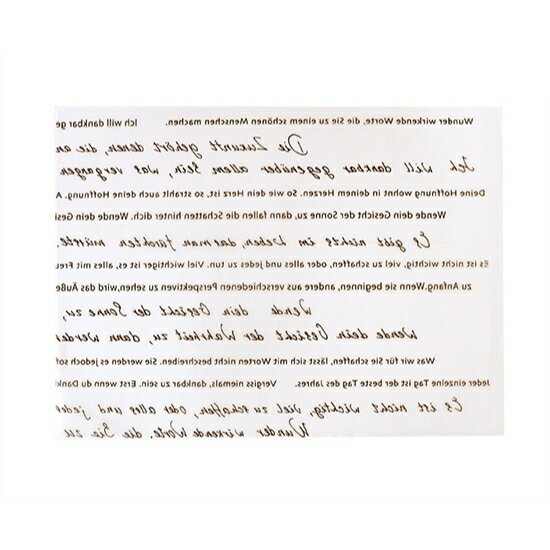 Wunder wirkende, Worte, die Sie zu einem schönen Menschen machen. Ich will dankbar ge
Die Zukunft gehört denen, die an
Ich will dankbar gegenüber allem Sein, was vergangen
Deine Hoffnung wohnt in deinem Herzen. So wie dein Herz ist, so strahlt auch deine Hoffnung. A
Wende dein Gesicht der Sonne zu, dann fallen die Schatten hinter dich. Wende dein Gesi
Es gibt nichts im Leben, dar man fürchten müsste.
Es ist nicht wichtig, viel zu schaffen, oder alles und jedes zu tun. Viel wichtiger ist es, alles mit Freu
zu Anfang.Wenn sie beginnen, andere aus verschiedenen Perspektiven zu sehen,wird das Äuße
Wende dein Gesicht der Sonne zu,
Wende dein Gesicht der Wahrheit zu, dann werden
Was wir für Sie schaffen, lässt sich mit Worten nicht beschreiben. Sie werden es jedoch sof
Jeder einzelne Tag ist der beste Tag des Jahres. Vergiss niemals, dankbar zu sein. Erst wenn du Dank
Es ist nicht wichtig, viel zu schaffen, oder alles und jedes
Wunder wirkende Worte, die Sie zu